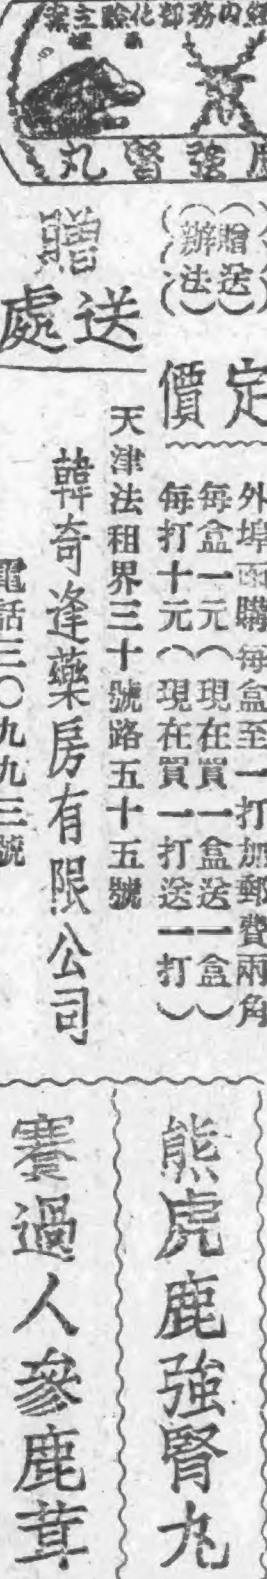 經內務部化驗主案
鹿強腎丸
贈送
辦法
定價
外埠函購每盒至一打加郵費兩角
每盒一元（現在買一盒送一盒）
每打十元（現在買一打送一打）
贈送處
天津法租界三十號路五十五號
韓奇逢藥房有限公司
電話三〇九九三號
熊虎鹿強腎丸
賽過人參鹿茸